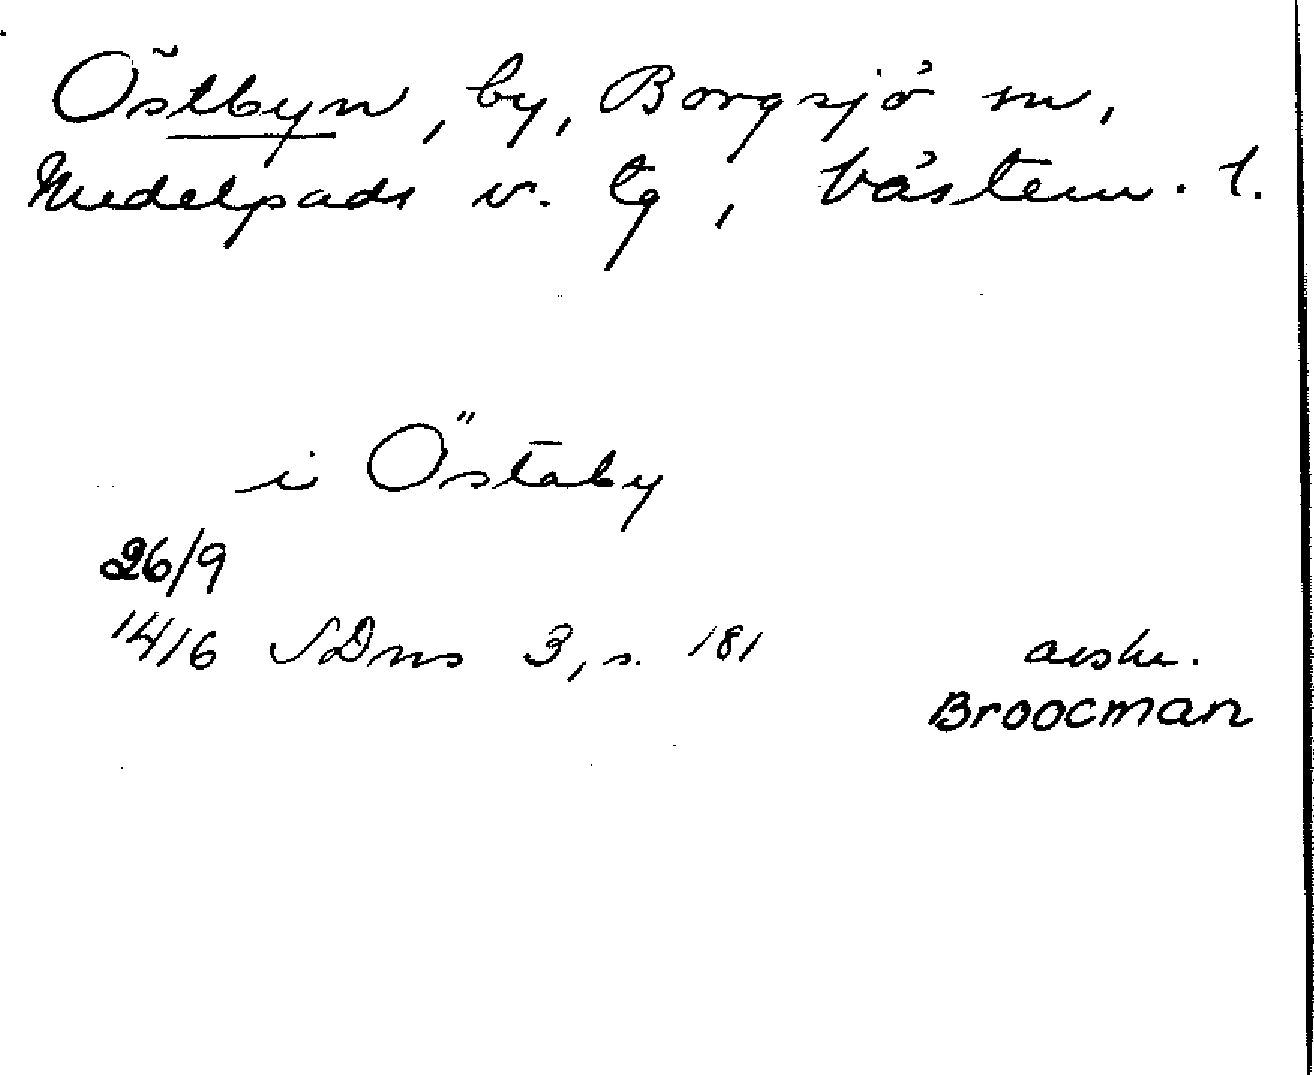 Östbyn, by, Borgsjö sn,
Medelpads v. tg, Västern. l.
i Östaby
26/9
1416 SDns 3, s. 181 avskr.
Broocman